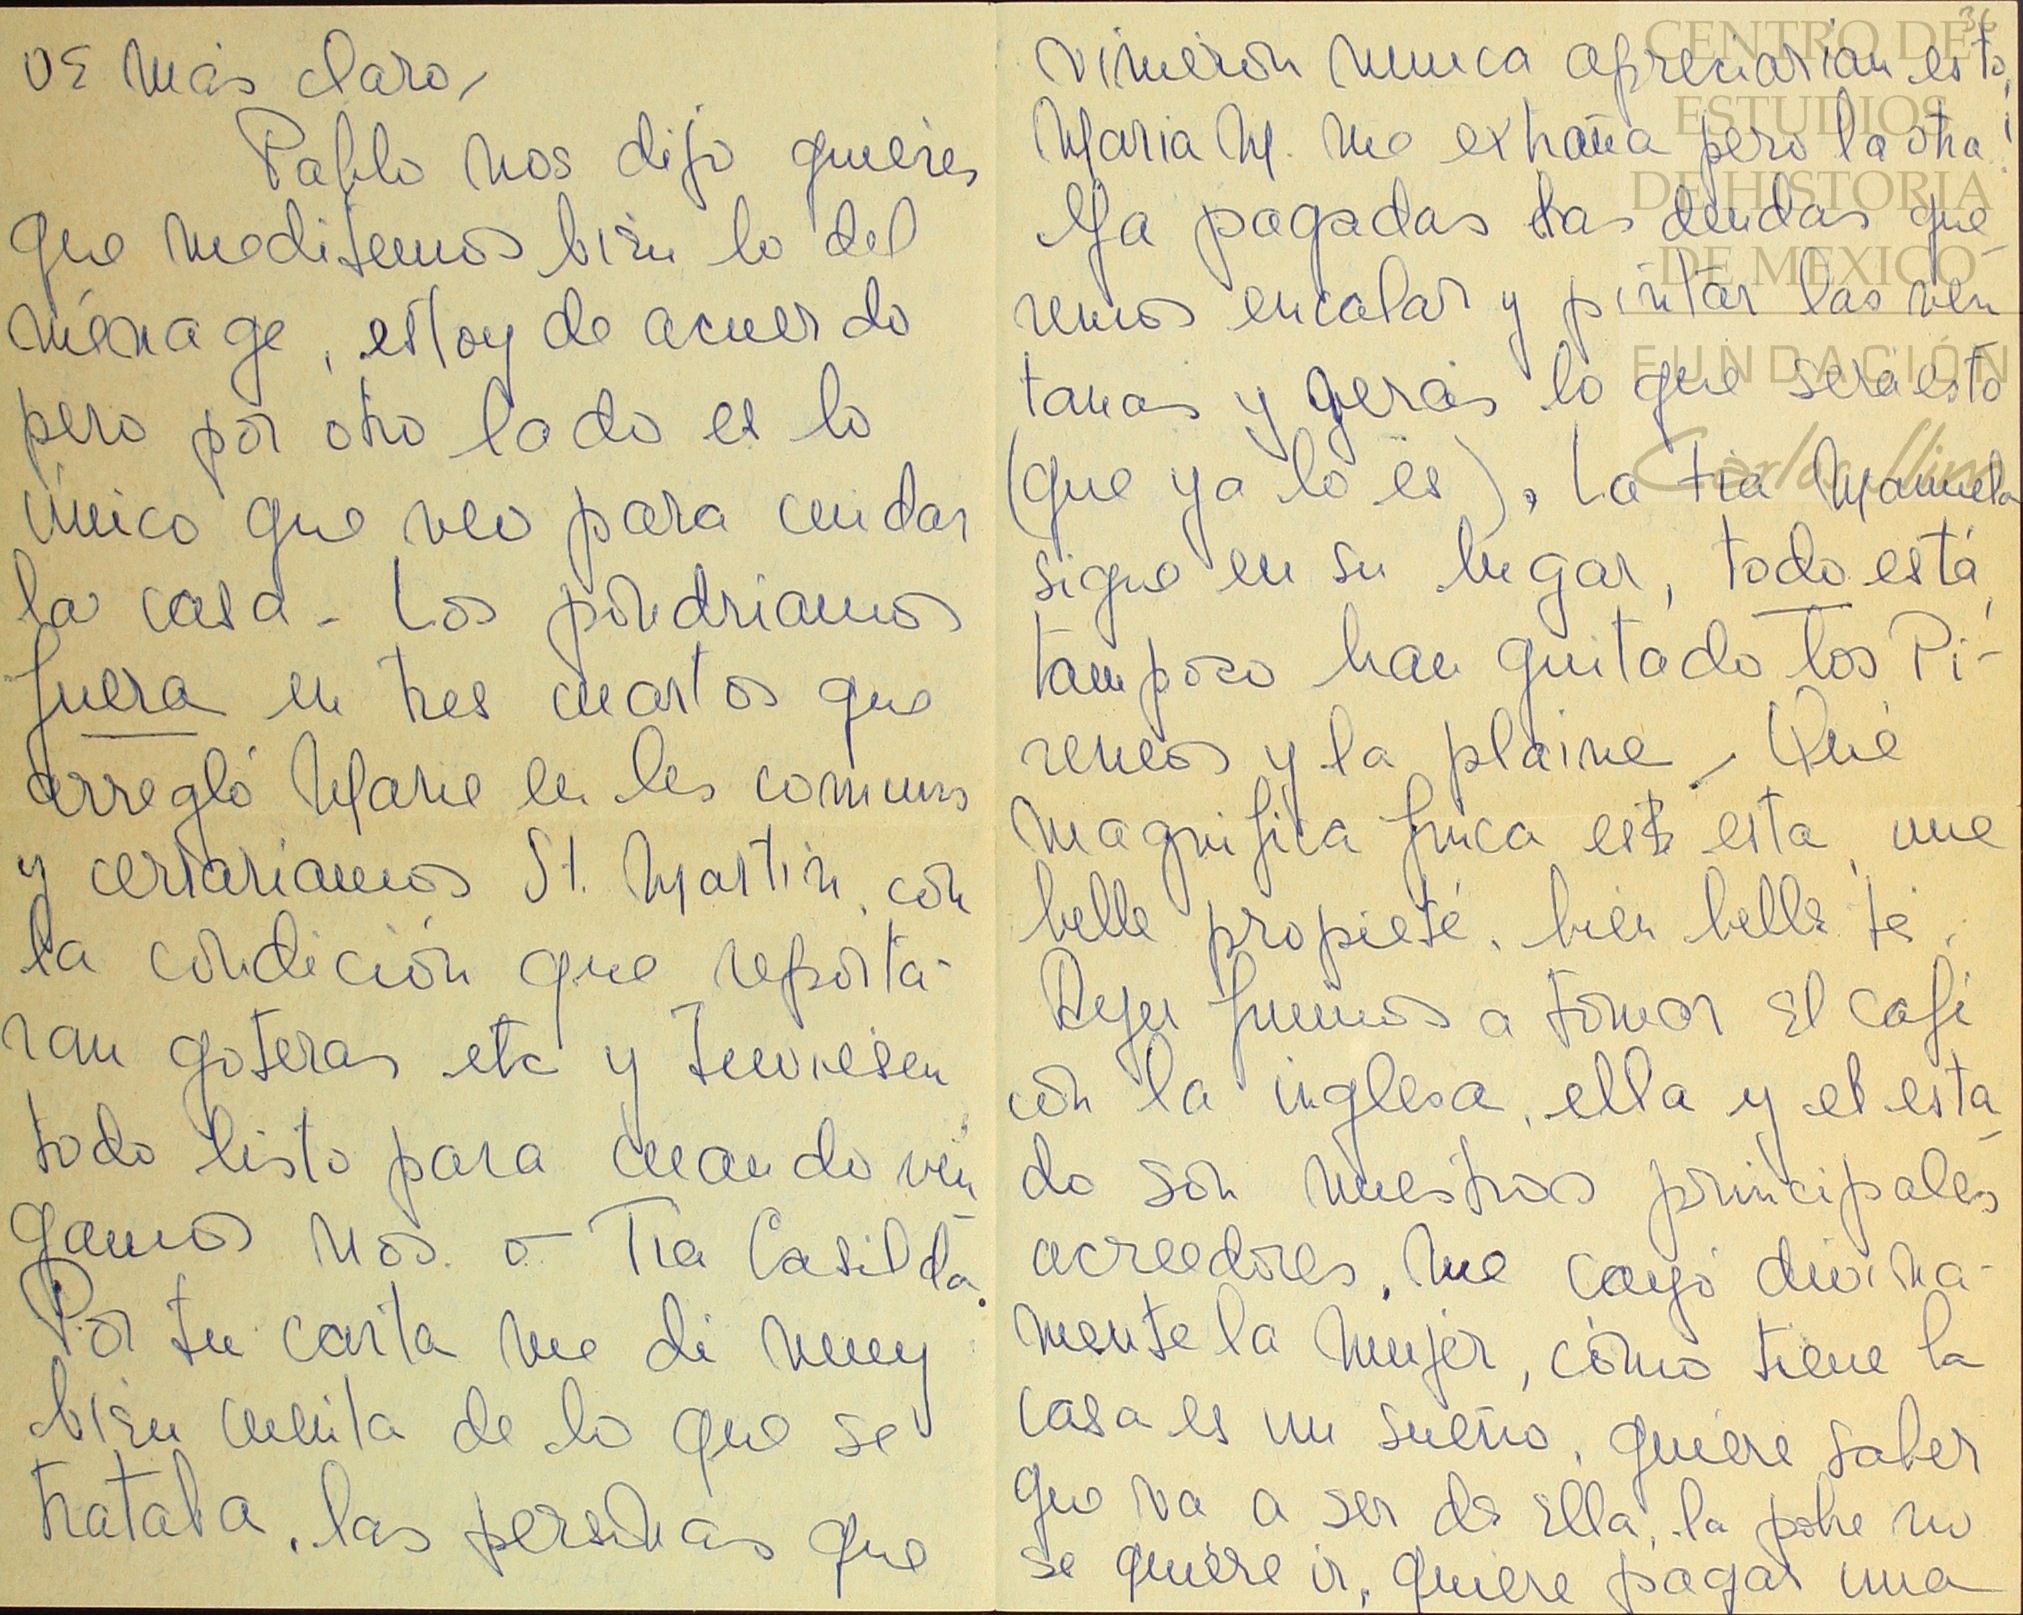 ve más claro,
Pablo nos dijo quieres
que meditemos bien lo del
ménage, estoy de acuerdo
pero por otro lado es lo
único que veo para cuidar
la casa - Los pondriamos
fuera en tres cuartos que
arregló Marie en les comuns
y cerrariamos St. Martin, con
la condición que reporta-
ran goteras etc y tuviesen
todo listo para cuando ven
gamos nos. o - Tia Casilda.
Por tu carta me di muy
bien cuenta de lo que se
trataba, las personas que
36
vinieron nunca apreciarian esto,
Maria M. me extraña pero la otra!
Ya pagadas las deudas que
remos encalar y pintar las ven
tanas y verás lo que será esto
(que ya lo es). La tia Manuela
sigue en su lugar, todo está,
tampoco han quitado los Pi-
reneos y la plaine - Qué
magnifica finca es esta, une
belle propieté, bien belle té.
Ayer fuimos a tomar el café
con la inglesa, ella y el esta
do son nuestros principales
acreedores, me cayó divina-
mente la mujer, cómo tiene la
casa es un sueño, quiere saber
que va a ser de ella, la pobre no
se quiere ir, quiere pagar una
CENTRO DE
ESTUDIOS
DE HISTORIA
DE MEXICO
FUNDACIÓN
Carlos Slim